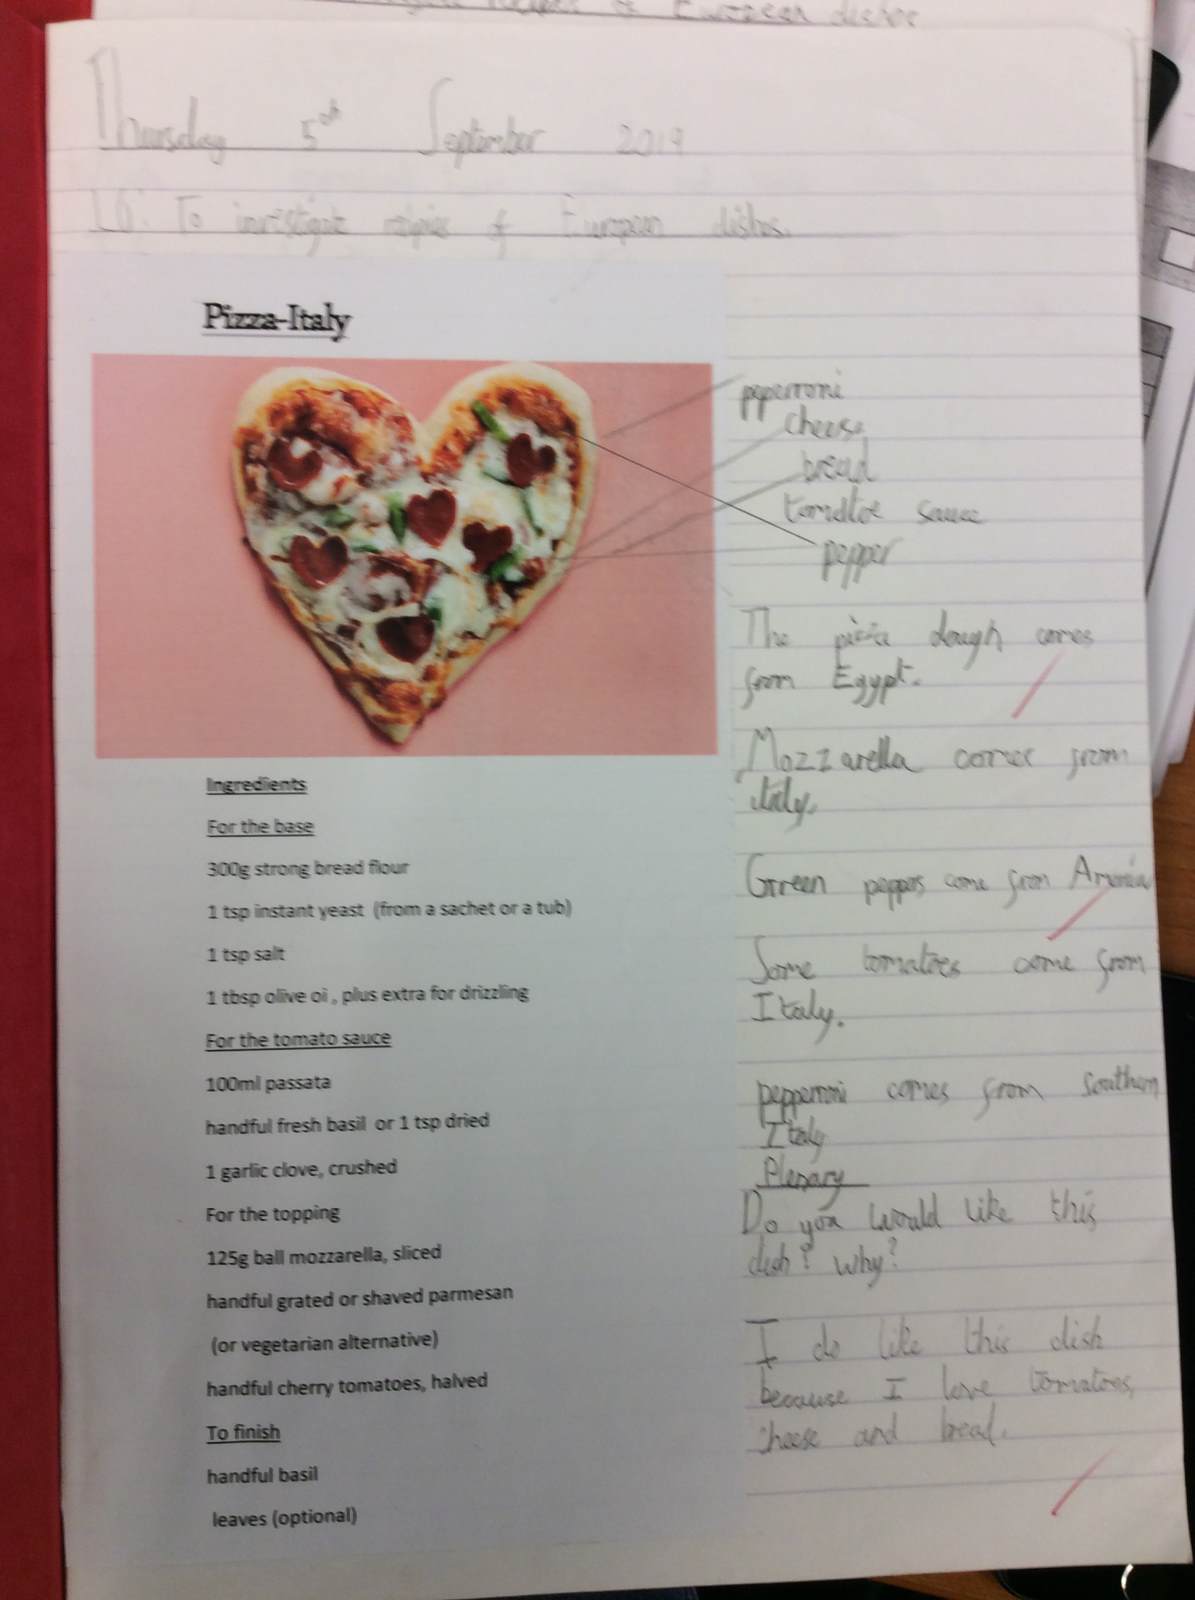 Thursday 5th September 2019
To investigate recipies of European dishes.
Pizza-Italy
peperroni
cheese
bread
tomatoe sauce
pepper
The pizza dough comes
from Egypt.
Mozzarella comes from
Italy.
Green peppers come from
Some tomatoes come from
Italy.
pepperroni comes from southern
Italy
Plenary
Do you would like this
dish? why?
I do like this dish
because I love tomatoes,
cheese and bread.
Ingredients
For the base
300g strong bread flour
1 tsp instant yeast (from a sachet or a tub)
1 tsp salt
1 tbsp olive oi , plus extra for drizzling
For the tomato sauce
100ml passata
handful fresh basil or 1 tsp dried
1 garlic clove, crushed
For the topping
125g ball mozzarella, sliced
handful grated or shaved parmesan
(or vegetarian alternative)
handful cherry tomatoes, halved
To finish
handful basil
leaves (optional)